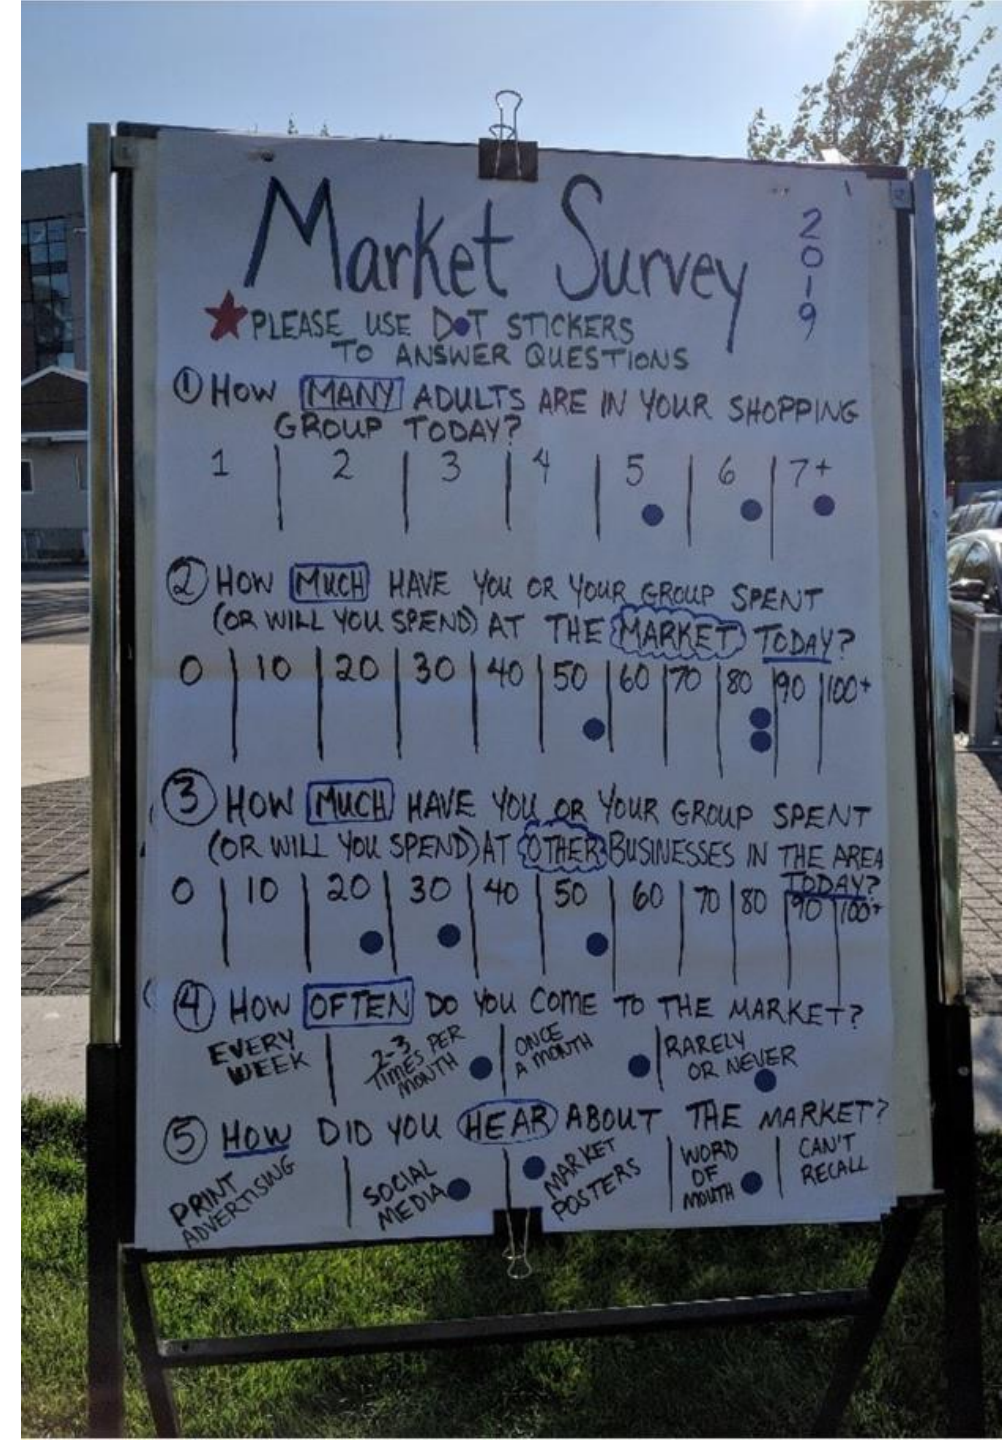 Market Survey
2019
PLEASE USE DOT STICKERS
TO ANSWER QUESTIONS
① HOW MANY ADULTS ARE IN YOUR SHOPPING
GROUP TODAY?
1 2 3 4 5 6 7+
② HOW MUCH HAVE YOU OR YOUR GROUP SPENT
(OR WILL YOU SPEND) AT THE MARKET TODAY?
0 10 20 30 40 50 60 70 80 90 100+
③ HOW MUCH HAVE YOU OR YOUR GROUP SPENT
(OR WILL YOU SPEND) AT OTHER BUSINESSES IN THE AREA
TODAY?
0 10 20 30 40 50 60 70 80 90 100+
④ HOW OFTEN DO YOU COME TO THE MARKET?
EVERY
WEEK
2-3
TIMES PER
MONTH
ONCE
A MONTH
RARELY
OR NEVER
⑤ HOW DID YOU HEAR ABOUT THE MARKET?
PRINT
ADVERTISING
SOCIAL
MEDIA
MARKET
POSTERS
WORD
OF
MOUTH
CAN'T
RECALL